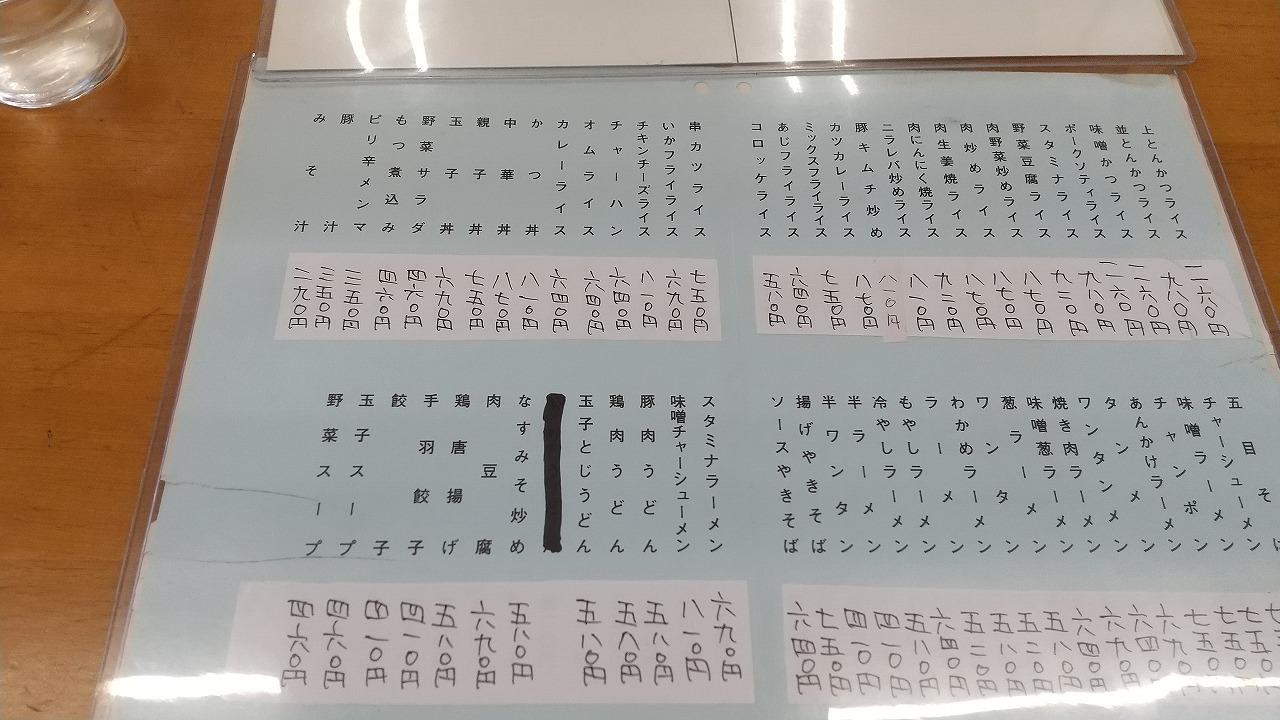 上とんかつライス
並とんかつライス
味噌かつライス
ポークソティライス
スタミナライス
野菜豆腐ライス
肉野菜炒めライス
肉炒めライス
肉生姜焼ライス
肉にんにく焼ライス
ニラレバ炒めライス
豚キムチ炒め
カツカレーライス
ミックスフライライス
あじフライライス
コロッケライス
一一六〇円
九八〇円
一一六〇円
一一六〇円
九八〇円
九三〇円
八七〇円
八七〇円
八七〇円
九三〇円
八一〇円
八一〇円
八七〇円
七五〇円
六四〇円
五八〇円
串カツライス
いかフライライス
チキンチーズライス
チャーハン
オムライス
カレーライス
かつ丼
中華丼
親子丼
玉子丼
野菜サラダ
もつ煮込み
ピリ辛メンマ
豚汁
みそ汁
七五〇円
六九〇円
八一〇円
六四〇円
六四〇円
六四〇円
八一〇円
八七〇円
七五〇円
六九〇円
四六〇円
四六〇円
三五〇円
三五〇円
二九〇円
五目そ
チャーシューメン
味噌ラーメン
チャンポン
あんかけラーメン
タンメン
ワンタンメン
焼き肉ラーメン
味噌葱ラーメン
葱ラーメン
ワンタン
わかめラーメン
ラーメン
もやしラーメン
冷やしラーメン
半ラーメン
半ワンタン
揚げやきそば
ソースやきそば
七五〇円
七五〇円
七五〇円
六九〇円
六四〇円
六九〇円
六四〇円
五八〇円
五二〇円
五八〇円
五二〇円
六四〇円
五八〇円
四一〇円
四一〇円
七五〇円
六四〇円
スタミナラーメン
味噌チャーシューメン
豚肉うどん
鶏肉うどん
玉子とじうどん
なすみそ炒め
肉豆腐
鶏唐揚げ
手羽餃子
餃子
玉子スープ
野菜スープ
六九〇円
八一〇円
五八〇円
五八〇円
五八〇円
五八〇円
六九〇円
五八〇円
四一〇円
四一〇円
四六〇円
四六〇円